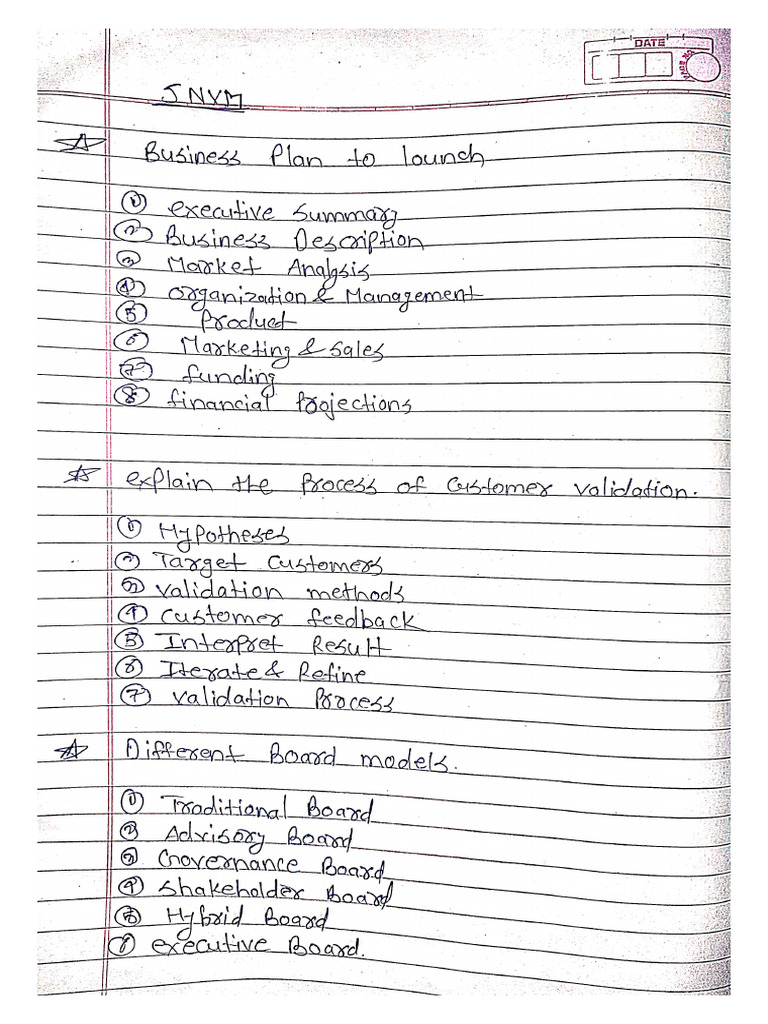 DATE
JNVM
Business Plan to lounch
① executive summary
② Business Description
③ Market Analysis
④ organization & Management
⑤ Product
⑥ Marketing & sales
⑦ funding
⑧ financial Projections
explain the Process of Customer validation.
① Hypotheses
② Target Customers
③ validation methods
④ customer feedback
⑤ Interpret Result
⑥ Iterate & Refine
⑦ validation Process
Different Board models.
① Traditional Board
② Advisory Board
③ Governance Board
④ shakeholder Board
⑤ Hybrid Board
⑥ executive Board.